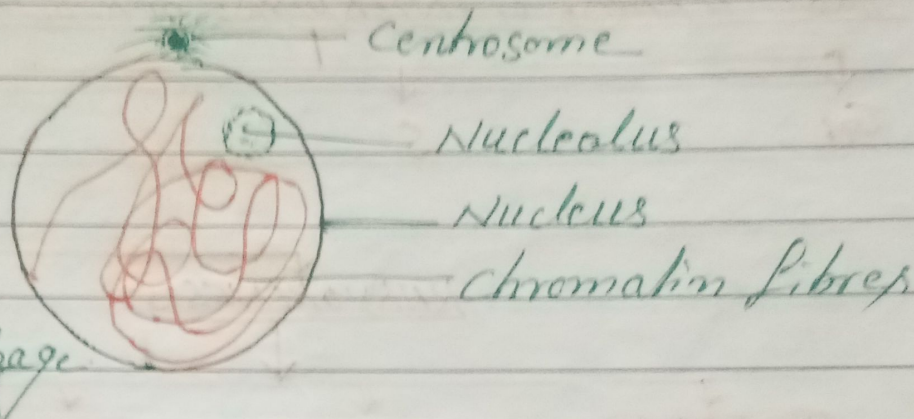 Centrosome
Nucleolus
Nucleus
Chromatin fibres